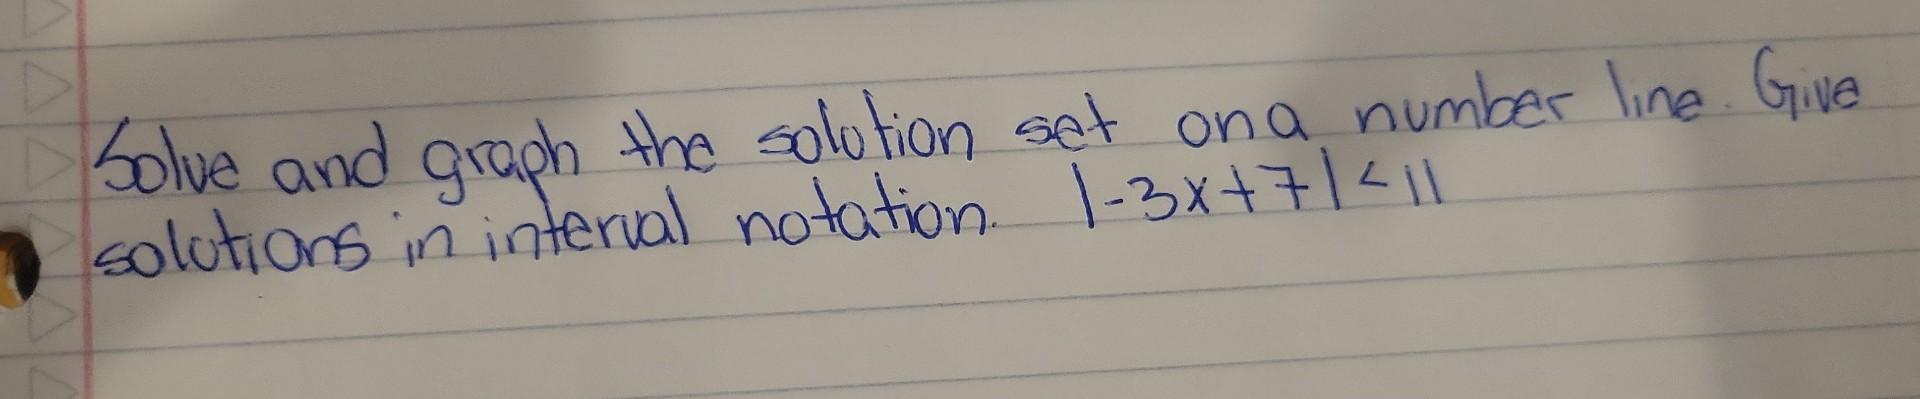 Solve and graph the solution set on a number line. Give
solutions in interval notation. |-3x+7|<11